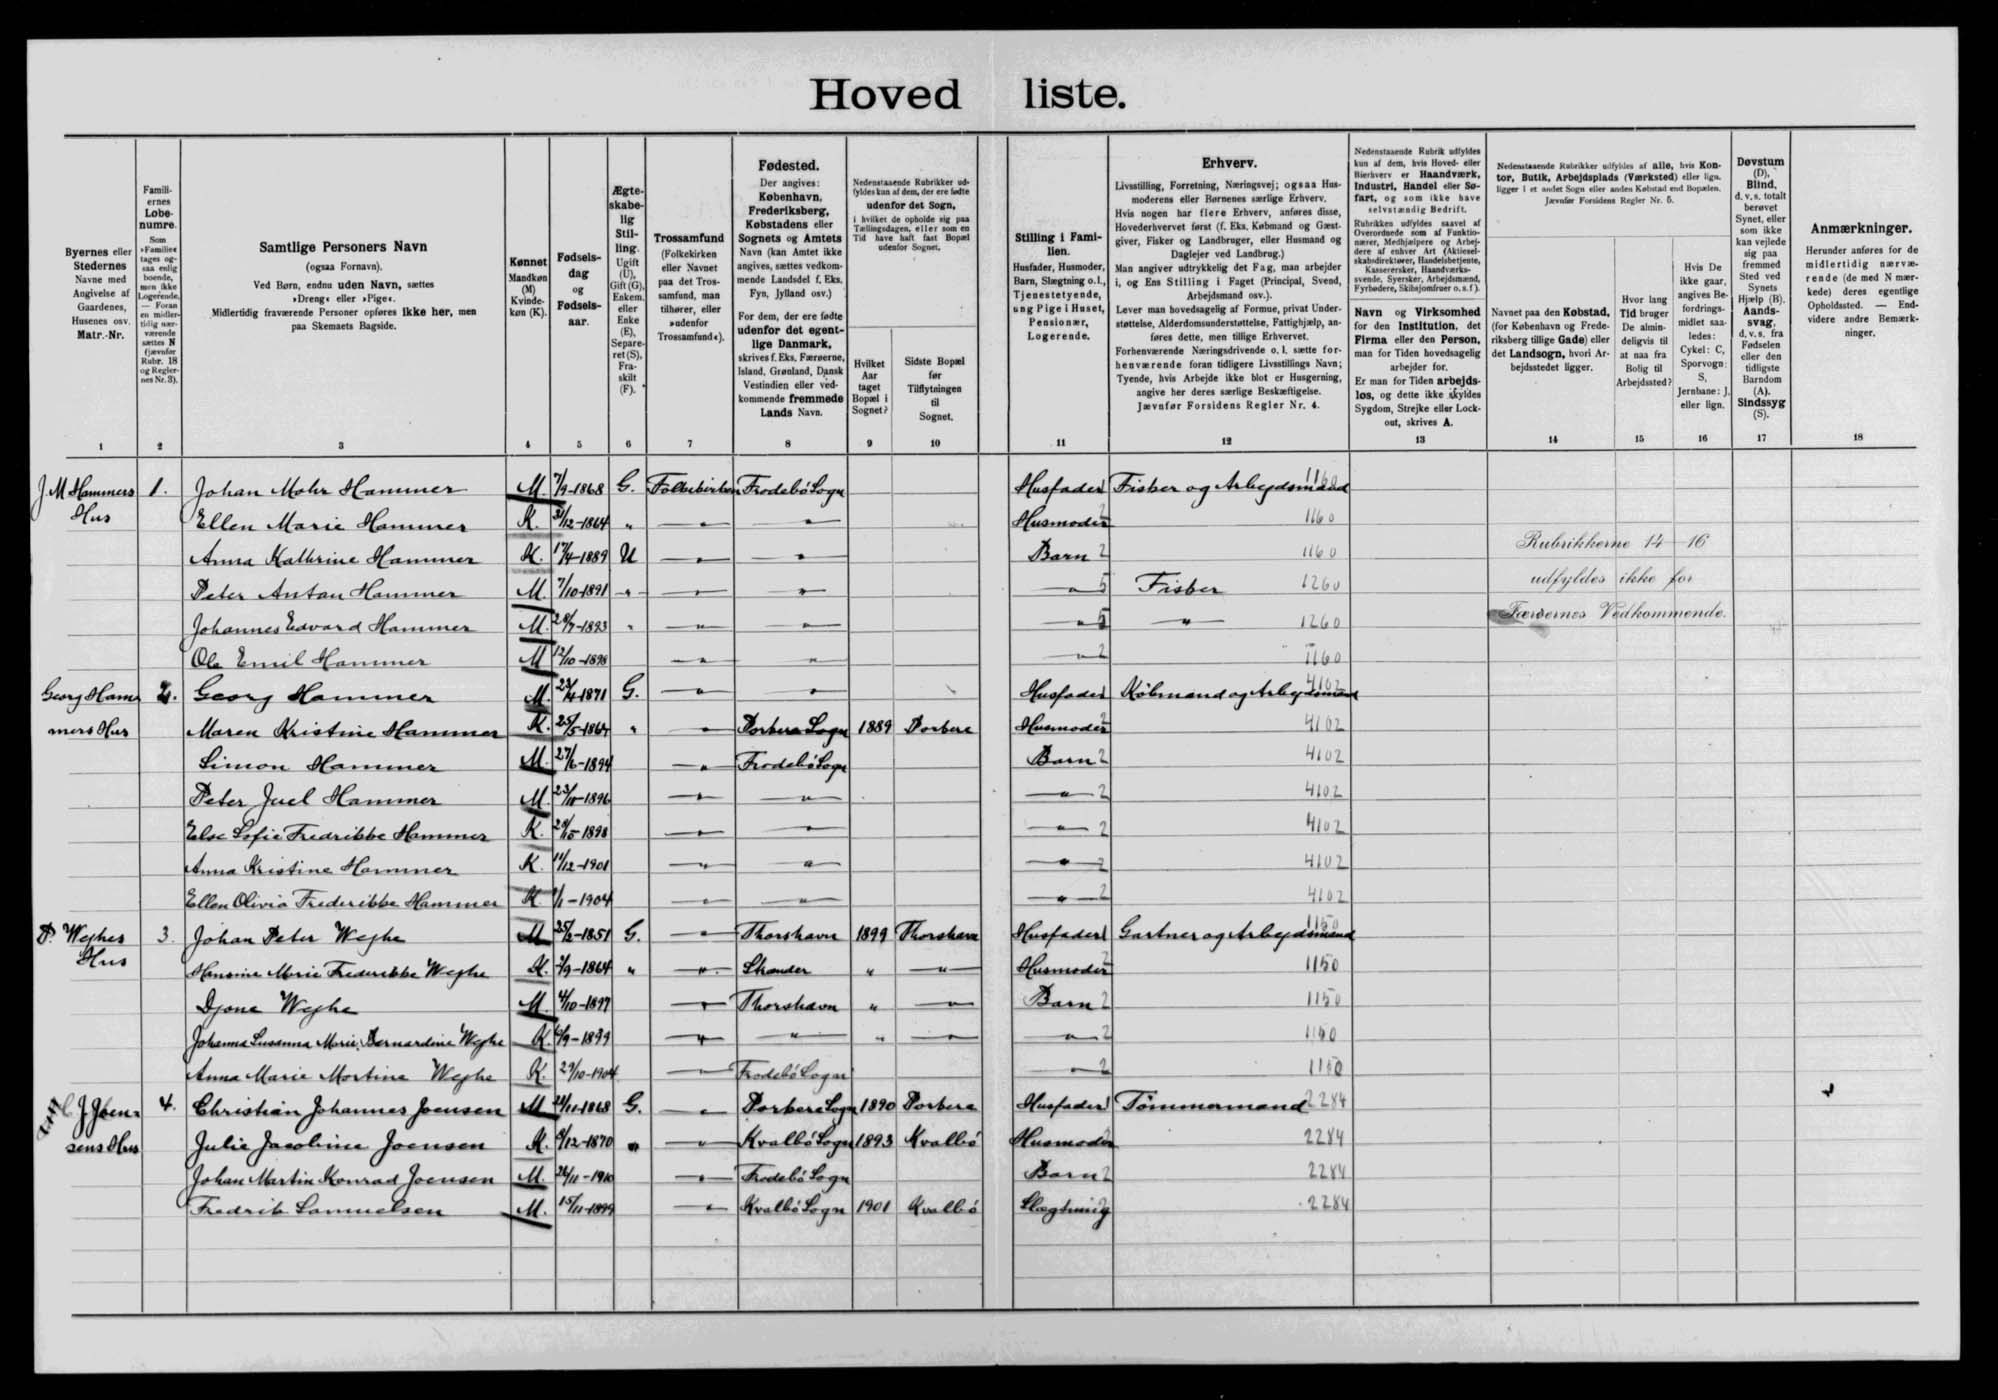 Hoved liste.
Byernes eller Stedernes Navne med Angivelse af Gaardenes, Husenes osv. Matr.-Nr.
Famili-ernes Løbe-numre. Som »Familie« tages og-saa enlig boende, men ikke Logerende. — Foran en midler-tidig nær-værende sættes N (jævnfør Rubr. 18 og Regler-nes Nr. 3).
Samtlige Personers Navn (ogsaa Fornavn). Ved Børn, endnu uden Navn, sættes »Dreng« eller »Pige«. Midlertidig fraværende Personer opføres ikke her, men paa Skemaets Bagside.
Kønnet Mandkøn (M) Kvinde-køn (K).
Fødsels-dag og Fødsels-aar.
Ægte-skabe-lig Stil-ling. Ugift (U), Gift (G), Enkem. eller Enke (E), Separe-ret (S), Fra-skilt (F).
Trossamfund (Folkekirken eller Navnet paa det Tros-samfund, man tilhører, eller »udenfor Trossamfund«).
Fødested. Der angives: København, Frederiksberg, Købstadens eller Sognets og Amtets Navn (kan Amtet ikke angives, sættes vedkom-mende Landsdel f. Eks. Fyn, Jylland osv.) For dem, der ere fødte udenfor det egent-lige Danmark, skrives f. Eks. Færøerne, Island, Grønland, Dansk Vestindien eller ved-kommende fremmede Lands Navn.
Nedenstaaende Rubrikker ud-fyldes kun af dem, der ere fødte udenfor det Sogn, i hvilket de opholde sig paa Tællingsdagen, eller som en Tid have haft fast Bopæl udenfor Sognet.
Hvilket Aar taget Bopæl i Sognet?
Sidste Bopæl før Tilflytningen til Sognet.
Stilling i Fami-lien. Husfader, Husmoder, Barn, Slægtning o. l., Tjenestetyende, ung Pige i Huset, Pensionær, Logerende.
Erhverv. Livsstilling, Forretning, Næringsvej; ogsaa Hus-moderens eller Børnenes særlige Erhverv. Hvis nogen har flere Erhverv, anføres disse, Hovederhvervet først (f. Eks. Købmand og Gæst-giver, Fisker og Landbruger, eller Husmand og Daglejer ved Landbrug.) Man angiver udtrykkelig det Fag, man arbejder i, og Ens Stilling i Faget (Principal, Svend, Arbejdsmand osv.). Lever man hovedsagelig af Formue, privat Under-støttelse, Alderdomsunderstøttelse, Fattighjælp, an-føres dette, men tillige Erhvervet. Forhenværende Næringsdrivende o. l. sætte for-henværende foran tidligere Livsstillings Navn; Tyende, hvis Arbejde ikke blot er Husgerning, angive her deres særlige Beskæftigelse. Jævnfør Forsidens Regler Nr. 4.
Nedenstaaende Rubrik udfyldes kun af dem, hvis Hoved- eller Bierhverv er Haandværk, Industri, Handel eller Sø-fart, og som ikke have selvstændig Bedrift. Rubrikken udfyldes saavel af Overordnede som af Funktio-nærer, Medhjælpere og Arbej-dere af enhver Art (Aktiesel-skabsdirektører, Handelsbetjente, Kasserersker, Haandværks-svende, Syersker, Arbejdsmænd, Fyrbødere, Skibsjomfruer o. s. f.). Navn og Virksomhed for den Institution, det Firma eller den Person, man for Tiden hovedsagelig arbejder for. Er man for Tiden arbejds-løs, og dette ikke skyldes Sygdom, Strejke eller Lock-out, skrives A.
Nedenstaaende Rubrikker udfyldes af alle, hvis Kon-tor, Butik, Arbejdsplads (Værksted) eller lign. ligger i et andet Sogn eller anden Købstad end Bopælen. Jævnfør Forsidens Regler Nr. 5.
Navnet paa den Købstad, (for København og Frede-riksberg tillige Gade) eller det Landsogn, hvori Ar-bejdsstedet ligger.
Hvor lang Tid bruger De almin-deligvis til at naa fra Bolig til Arbejdssted?
Hvis De ikke gaar, angives Be-fordrings-midlet saa-ledes: Cykel: C, Sporvogn: S, Jernbane: J, eller lign.
Døvstum (D), Blind, d. v. s. totalt berøvet Synet, eller som ikke kan vejlede sig paa fremmed Sted ved Synets Hjælp (B). Aands-svag, d. v. s. fra Fødselen eller den tidligste Barndom (A). Sindssyg (S).
Anmærkninger. Herunder anføres for de midlertidig nærvæ-rende (de med N mær-kede) deres egentlige Opholdssted. — End-videre andre Bemærk-ninger.
1 2 3 4 5 6 7 8 9 10 11 12 13 14 15 16 17 18
J. M Hammers 1. Johan Mohr Hammer M. 7/9-1868 G. Folkekirken Frodebö Sogn Husfader 1 Fisker og Arbejdsmand 1160
Hus Ellen Marie Hammer K. 31/12-1864 " " " Husmoder 2 1160
Anna Kathrine Hammer K. 17/4-1889 U " " Barn 2 1160 Rubrikkerne 14 - 16
Peter Anton Hammer M. 7/10-1891 " " " " 5 Fisker 1260 udfyldes ikke for
Johannes Edvard Hammer M. 28/7-1893 " " " " 5 " 1260 Færøernes Vedkommende.
Ole Emil Hammer M 12/10-1898 " " " 2 1160
Georg Ham- 2. Georg Hammer M. 23/4-1871 G. " " Husfader 1 Købmand og Arbejdsmand 4102
mers Hus Maren Kristine Hammer K. 25/5-1864 " " Porkere Sogn 1889 Porkere Husmoder 2 4102
Simon Hammer M. 27/6-1894 " Frodebö Sogn Barn 2 4102
Peter Juel Hammer M. 23/10-1896 " " " 2 4102
Else Sofie Fredrikke Hammer K. 28/5-1898 " " " 2 4102
Anna Kristine Hammer K. 11/12-1901 " " " 2 4102
Ellen Olivia Frederikke Hammer K. 1/1-1904 " " " 2 4102
P. Wejhes 3. Johan Peter Wejhe M 25/2-1851 G. " Thorshavn 1899 Thorshavn Husfader 1 Gartner og Arbejdsmand 1150
Hus Hansine Marie Frederikke Wejhe K. 3/9-1864 " " Skander " " Husmoder 2 1150
Djone Wejhe M. 4/10-1897 " Thorshavn " " Barn 2 1150
Johanna Susanna Marie Bernardine Wejhe K. 6/9-1899 " " " " " 2 1150
Anna Marie Mortine Wejhe K. 29/10-1904 " Frodebö Sogn " 2 1150
C. J. Joen- 4. Christian Johannes Joensen M 21/11-1868 G. " Porkere Sogn 1890 Porkere Husfader 1 Tömmermand 2284
sens Hus Julie Jacobine Joensen K. 8/12-1870 " " Kvalbö Sogn 1893 Kvalbö Husmoder 2284
Johan Martin Konrad Joensen M. 26/11-1910 " Frodebö Sogn Barn 2 2284
Fredrik Samuelsen M. 15/11-1899 " Kvalbö Sogn 1901 Kvalbö Slægtning 2284